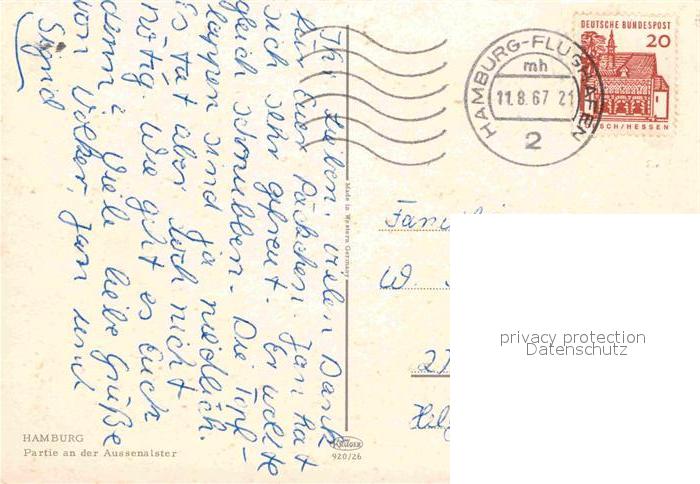 Ihr Lieben, vielen Dank
für Euer Päckchen. Jan hat
sich sehr gefreut. Er wollte
gleich schrubben. Die Topf-
lappen sind ja niedlich.
Es tat aber doch nicht
nötig. Wie geht es Euch
denn? Viele liebe Grüße
von Volker, Jan und
Sigrid
DEUTSCHE BUNDESPOST
20
SCH/HESSEN
HAMBURG-FLUGHAFEN
mh
11.8.67 21
2
Made in Western Germany
Fam
W.
privacy protection
Datenschutz
HAMBURG
Partie an der Aussenalster
KRÜGER
920/26